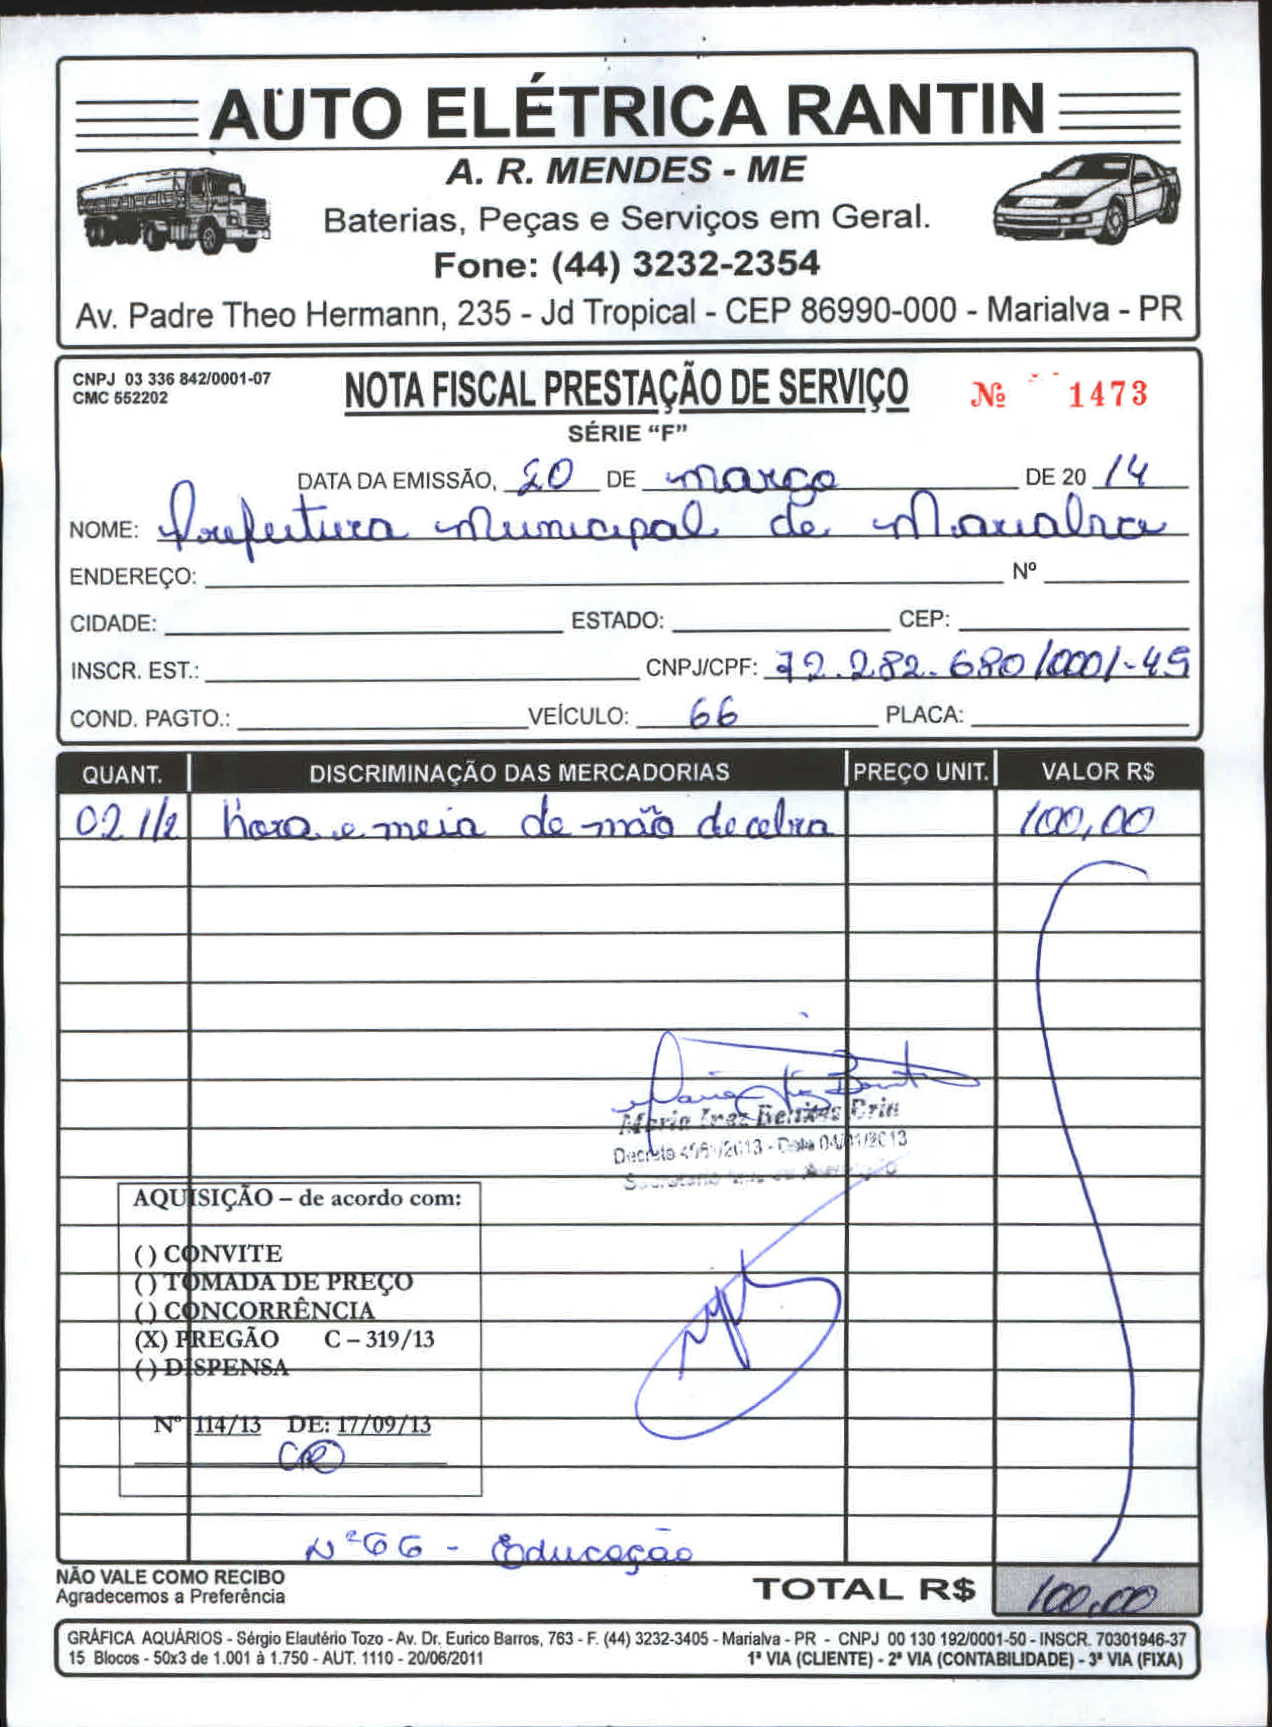 AUTO ELÉTRICA RANTIN
A. R. MENDES - ME
Baterias, Peças e Serviços em Geral.
Fone: (44) 3232-2354
Av. Padre Theo Hermann, 235 - Jd Tropical - CEP 86990-000 - Marialva - PR
CNPJ 03 336 842/0001-07
CMC 552202
NOTA FISCAL PRESTAÇÃO DE SERVIÇO
Nº 1473
SÉRIE “F”
DATA DA EMISSÃO, 20 DE março DE 20 14
NOME: Prefeitura Municipal de Marialva
ENDEREÇO: Nº
CIDADE: ESTADO: CEP:
INSCR. EST.: CNPJ/CPF: 72.282.680/0001-45
COND. PAGTO.: VEÍCULO: 66 PLACA:
QUANT. DISCRIMINAÇÃO DAS MERCADORIAS PREÇO UNIT. VALOR R$
02 1/2 hora e meia de mão de cobra 100,00
Maria Inez Decreto /2013 - Data 04/01/2013
AQUISIÇÃO – de acordo com:
( ) CONVITE
( ) TOMADA DE PREÇO
( ) CONCORRÊNCIA
(X) PREGÃO C – 319/13
( ) DISPENSA
Nº 114/13 DE: 17/09/13
Nº 66 - Educação
NÃO VALE COMO RECIBO
Agradecemos a Preferência
TOTAL R$ 100,00
GRÁFICA AQUÁRIOS - Sérgio Elautério Tozo - Av. Dr. Eurico Barros, 763 - F. (44) 3232-3405 - Marialva - PR - CNPJ 00 130 192/0001-50 - INSCR. 70301946-37
15 Blocos - 50x3 de 1.001 à 1.750 - AUT. 1110 - 20/06/2011 1ª VIA (CLIENTE) - 2ª VIA (CONTABILIDADE) - 3ª VIA (FIXA)